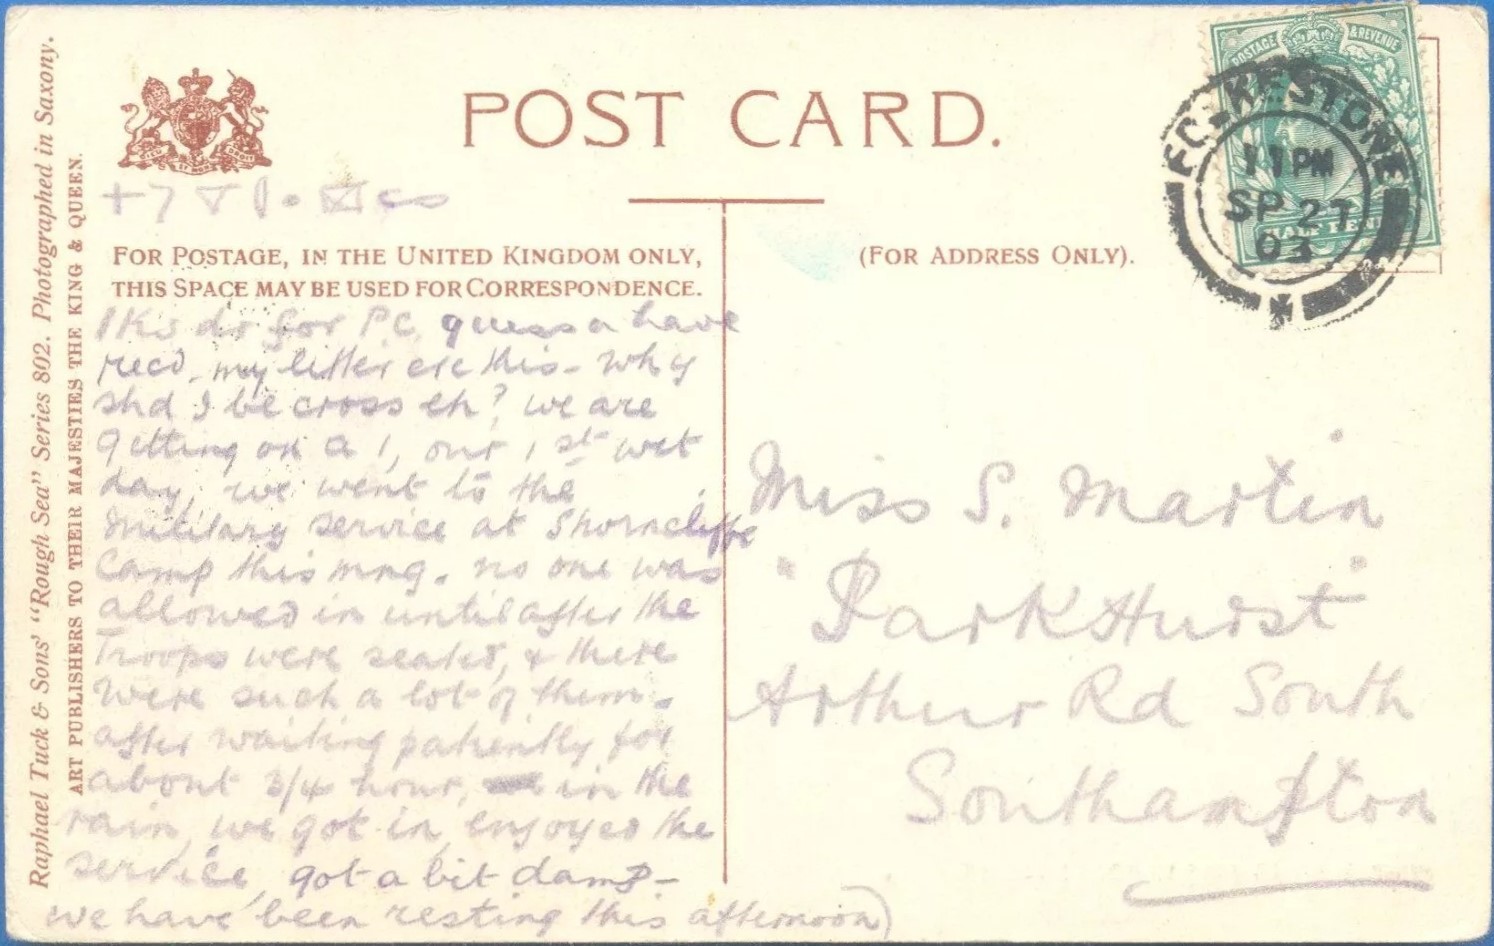 POST CARD.
POSTAGE & REVENUE
FOLKESTONE
11 PM
SP 27
03
FOR POSTAGE, IN THE UNITED KINGDOM ONLY,
THIS SPACE MAY BE USED FOR CORRESPONDENCE.
(FOR ADDRESS ONLY).
Raphael Tuck & Sons' "Rough Sea" Series 802. Photographed in Saxony.
ART PUBLISHERS TO THEIR MAJESTIES THE KING & QUEEN.
for P.C. guess u have
recd. my letter ere this - Why
shd I be cross eh? we are
getting on A 1, our 1st wet
day, we went to the
military service at Shorncliffe
Camp this mng. no one was
allowed in until after the
Troops were seated, & there
were such a lot of them.
after waiting patiently for
about 3/4 hour, in the
rain, we got in, enjoyed the
service, got a bit damp -
we have been resting this afternoon)
Miss S. Martin
"ParkHurst"
Arthur Rd South
Southampton